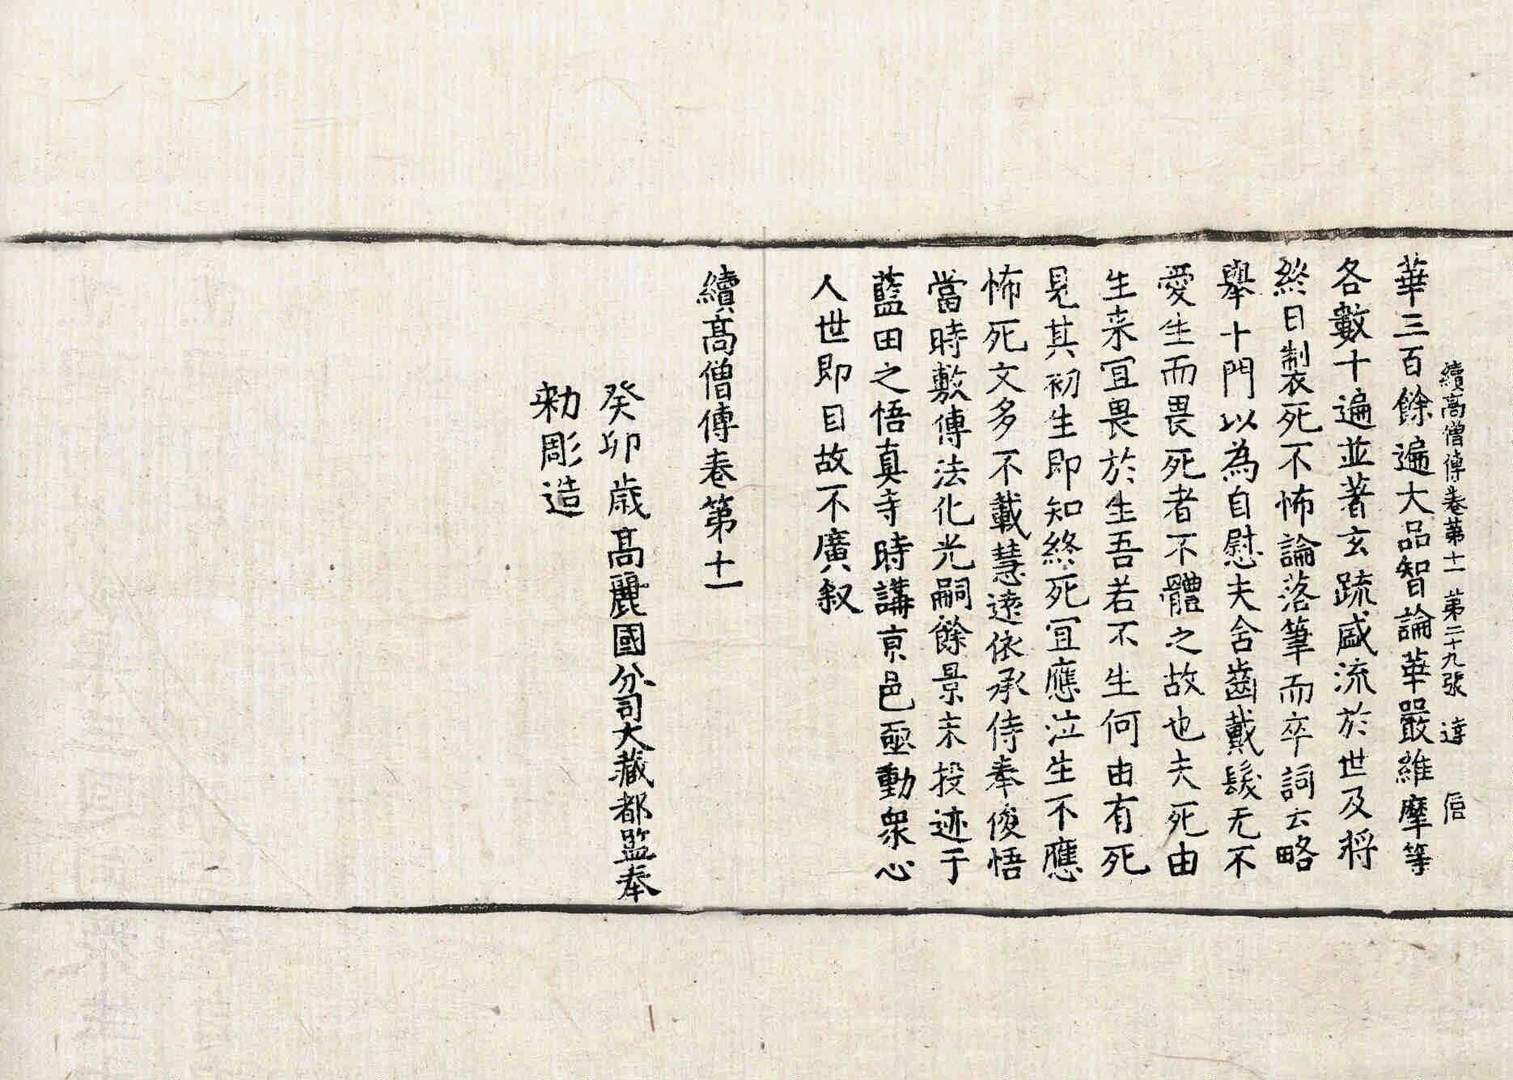 續高僧傳卷第十一 第二十九張 達
華三百餘遍大品智論華嚴維摩等
各數十遍並著玄䟽盛流於世及將
終日製死不怖論落筆而卒詞云略
舉十門以為自慰夫含齒戴髮无不
愛生而畏死者不體之故也夫死由
生来冝畏於生吾若不生何由有死
見其初生即知終死冝應泣生不應
怖死文多不載慧遠依承侍奉俊悟
當時敷傳法化光嗣餘景末投迹于
藍田之悟真寺時講京邑亟動衆心
人世即目故不廣叙
續高僧傳卷第十一
癸卯歳高麗國分司大藏都監奉
勑彫造